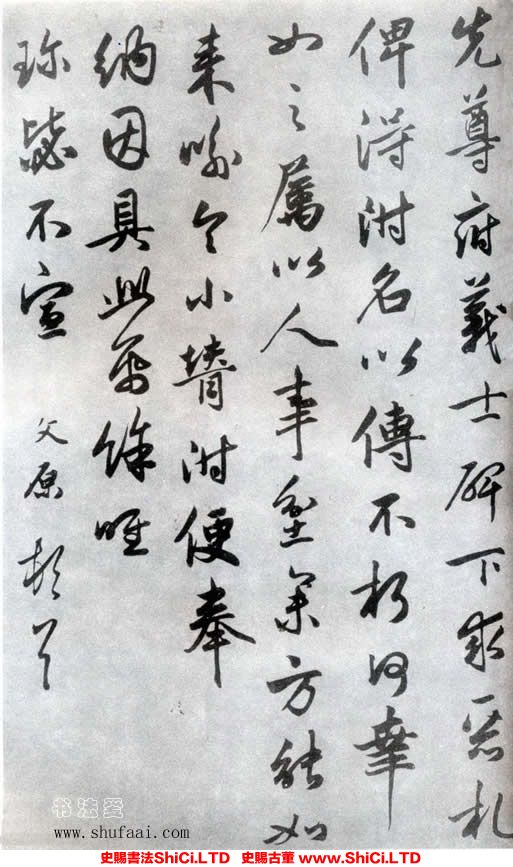 先尊府義士碑下求惡札
俾得附名以傳不朽何幸
如之屬以人事坌集方能如
来喻令小壻附便奉
納因具此品餘唯
珍毖不宣 文原頓首
书法爱
www.shufaai.com
史賜書法ShiCi.LTD 史賜古董 www.ShiCi.LTD